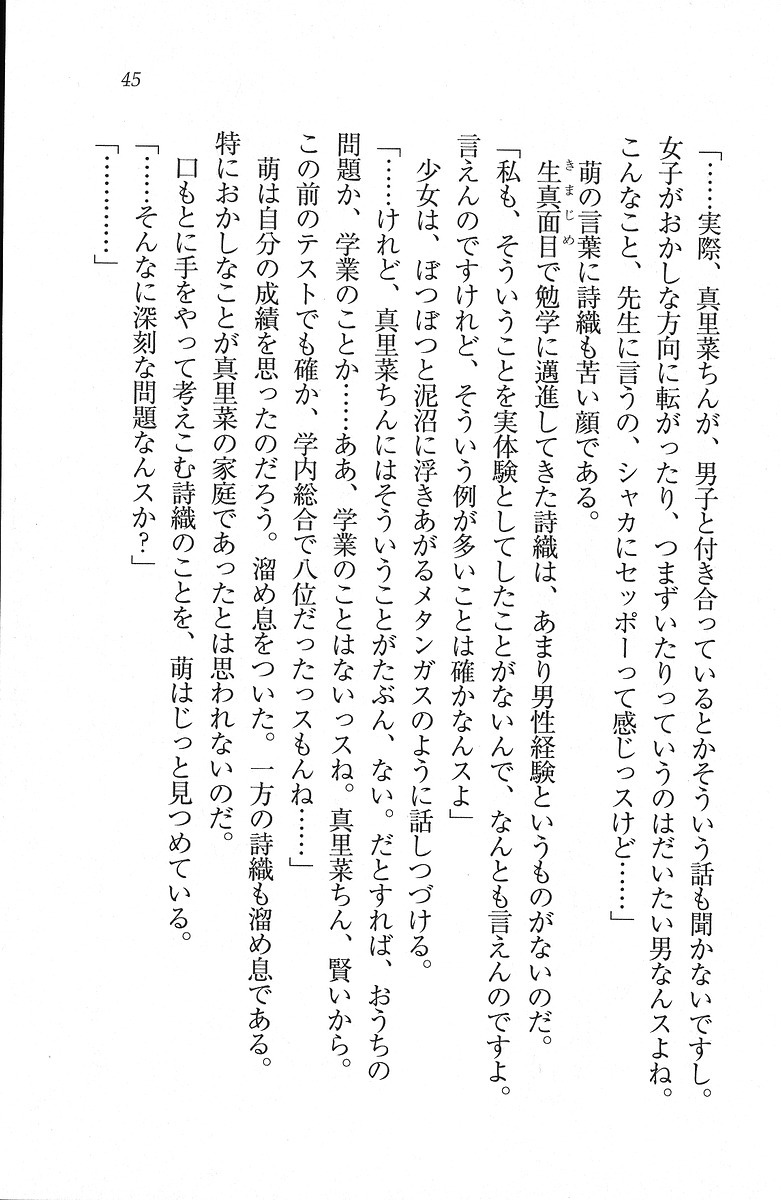 45
「……実際、真里菜ちんが、男子と付き合っているとかそういう話も聞かないですし。
女子がおかしな方向に転がったり、つまずいたりっていうのはだいたい男なんスよね。
こんなこと、先生に言うの、シャカにセッポーって感じっスけど……」
萌の言葉に詩織も苦い顔である。
生真面目で勉学に邁進してきた詩織は、あまり男性経験というものがないのだ。
きまじめ
「私も、そういうことを実体験としてしたことがないんで、なんとも言えんのですよ。
言えんのですけれど、そういう例が多いことは確かなんスよ」
少女は、ぽつぽつと泥沼に浮きあがるメタンガスのように話しつづける。
「……けれど、真里菜ちんにはそういうことがたぶん、ない。だとすれば、おうちの
問題か、学業のことか……ああ、学業のことはないっスね。真里菜ちん、賢いから。
この前のテストでも確か、学内総合で八位だったっスもんね……」
萌は自分の成績を思ったのだろう。溜め息をついた。一方の詩織も溜め息である。
特におかしなことが真里菜の家庭であったとは思われないのだ。
口もとに手をやって考えこむ詩織のことを、萌はじっと見つめている。
「……そんなに深刻な問題なんスか?」
「…………」